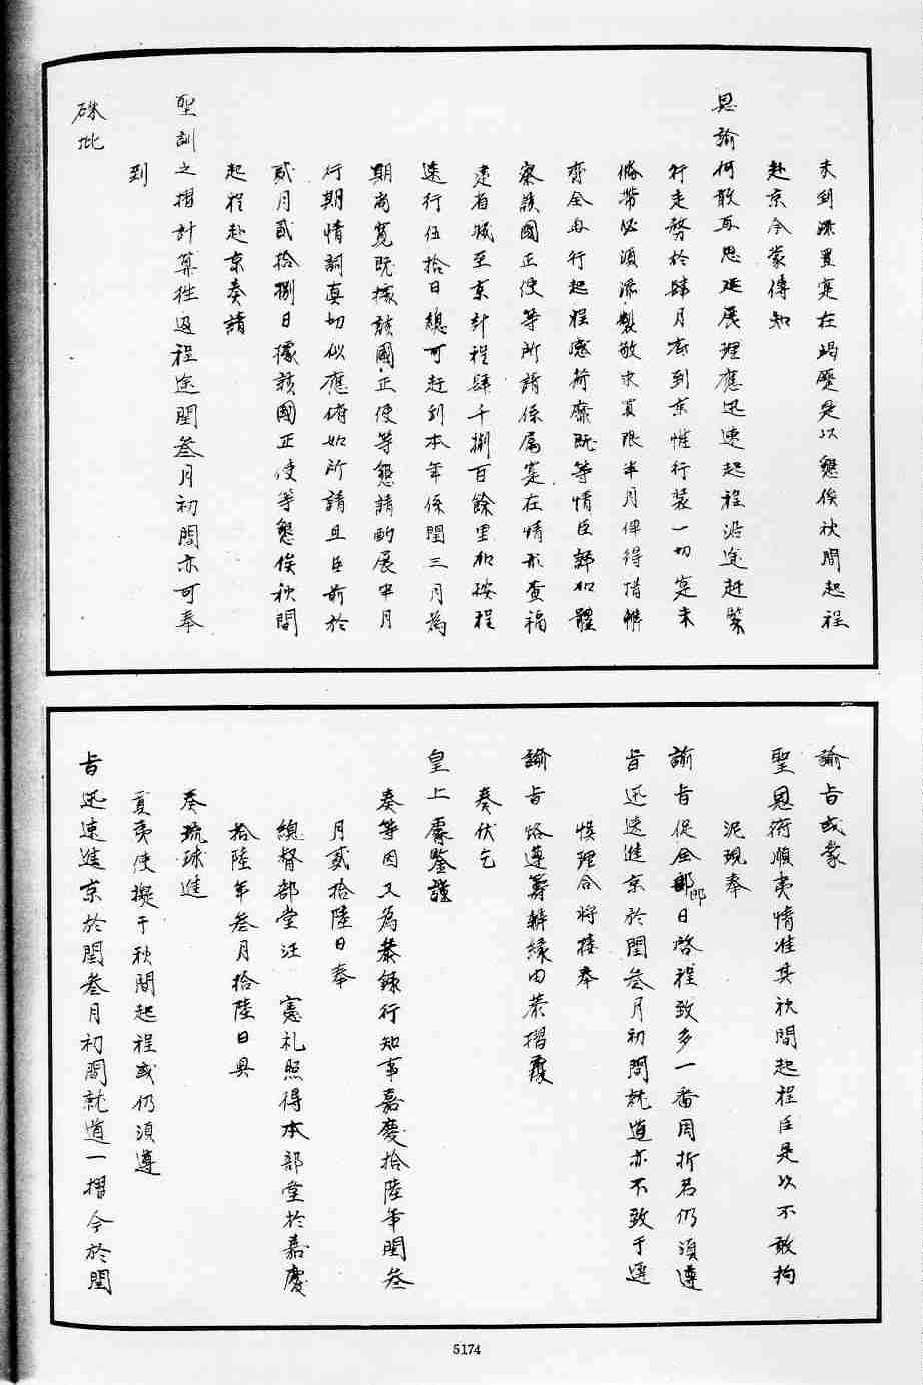 未到深置寔在竭蹷是以懇俟秋間起程
赴京今蒙傳知
恩諭何敢再思延展理應迅速起程沿途趕緊
行走務於肆月底到京惟行裝一切寔未
備帶必須添製敬求寬限半月俾得措辦
齊全再行起程感荷靡既等情臣歸加體
察該國正使等所請係屬寔在情形查福
建省城至京計程肆千捌百餘里加硤程
遄行伍拾日總可赶到本年係閏三月為
期尚寬既據該國正使等懇請酌展半月
行期情詞真切似應俯如所請且臣前於
貳月貳拾捌日據該國正使等懇俟秋間
起程赴京奏請
聖訓之摺計算徃返程途閏叁月初間亦可奉
到
硃批
諭旨或蒙
聖恩俯順夷情准其秋間起程臣是以不敢拘
泥現奉
諭旨促全郎即日啓程致多一番周折若仍須遵
旨迅速進京於閏叁月初間就道亦不致于遲
悮理合將接奉
諭旨恪遵籌辦緣由恭摺覆
奏伏乞
皇上睿鑒謹
奏等因又為恭錄行知事嘉慶拾陸年閏叁
月貳拾陸日奉
總督部堂汪 憲札照得本部堂於嘉慶
拾陸年叁月拾陸日具
奏琉球進
夏夷使擬于秋間起程或仍須遵
旨迅速進京於閏叁月初間就道一摺今於閏
5174